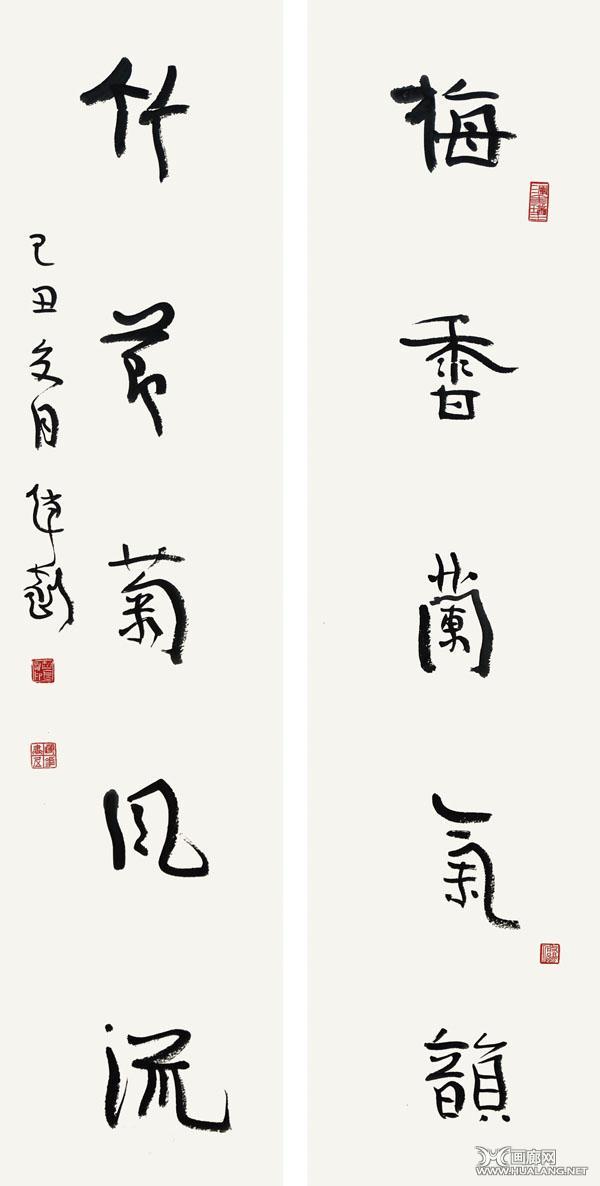 梅香蘭氣韻
竹節菊風流
己丑文月
画廊网
WWW.HUALANG.NET